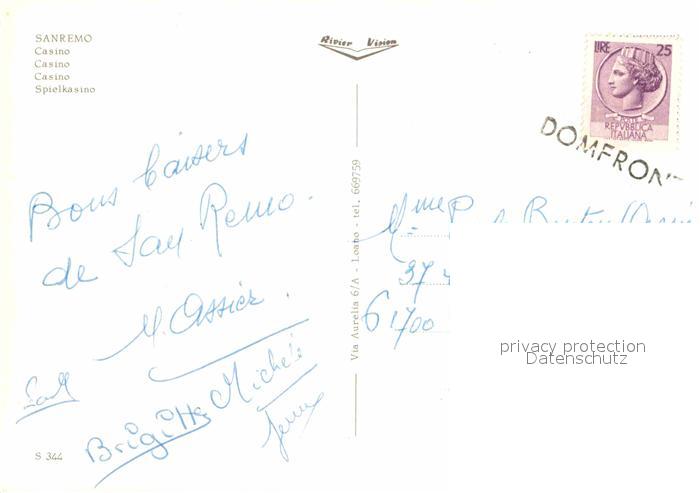 SANREMO
Casino
Casino
Casino
Spielkasino
Rivier Vision
LIRE 25
REPVBBLICA
ITALIANA
DOMFRONT
Bons baisers
de San Remo.
M. Assier.
Brigitte Michèle
S 344
Via Aurelia 6/A - Loano - tel. 669759
Mme P
37
61700
privacy protection
Datenschutz